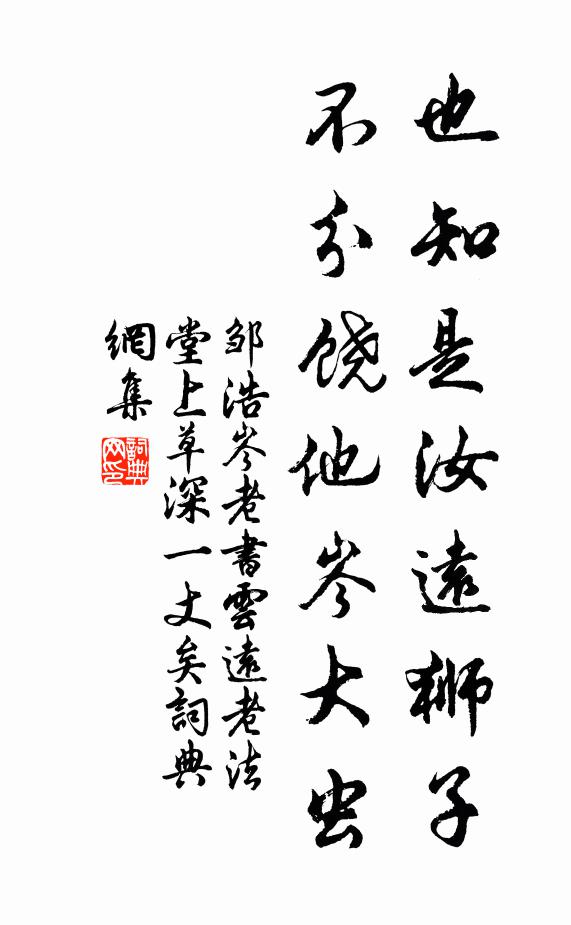 也知是汝遠獅子
不分饒他岑大虫
邹浩岑老書雲遠老法
堂上草深一丈矣詞典
網集
詞典
网印